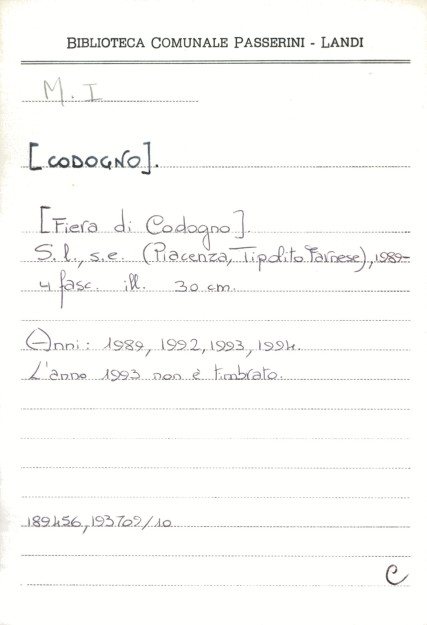 BIBLIOTECA COMUNALE PASSERINI - LANDI
M. I
[CODOGNO].
[Fiera di Codogno].
S.l., s.e. (Piacenza, Tipolito Farnese), 1989-
4 fasc. ill. 30 cm.
Anni: 1989, 1992, 1993, 1994.
L'anno 1993 non è timbrato.
189456, 193709/10
C